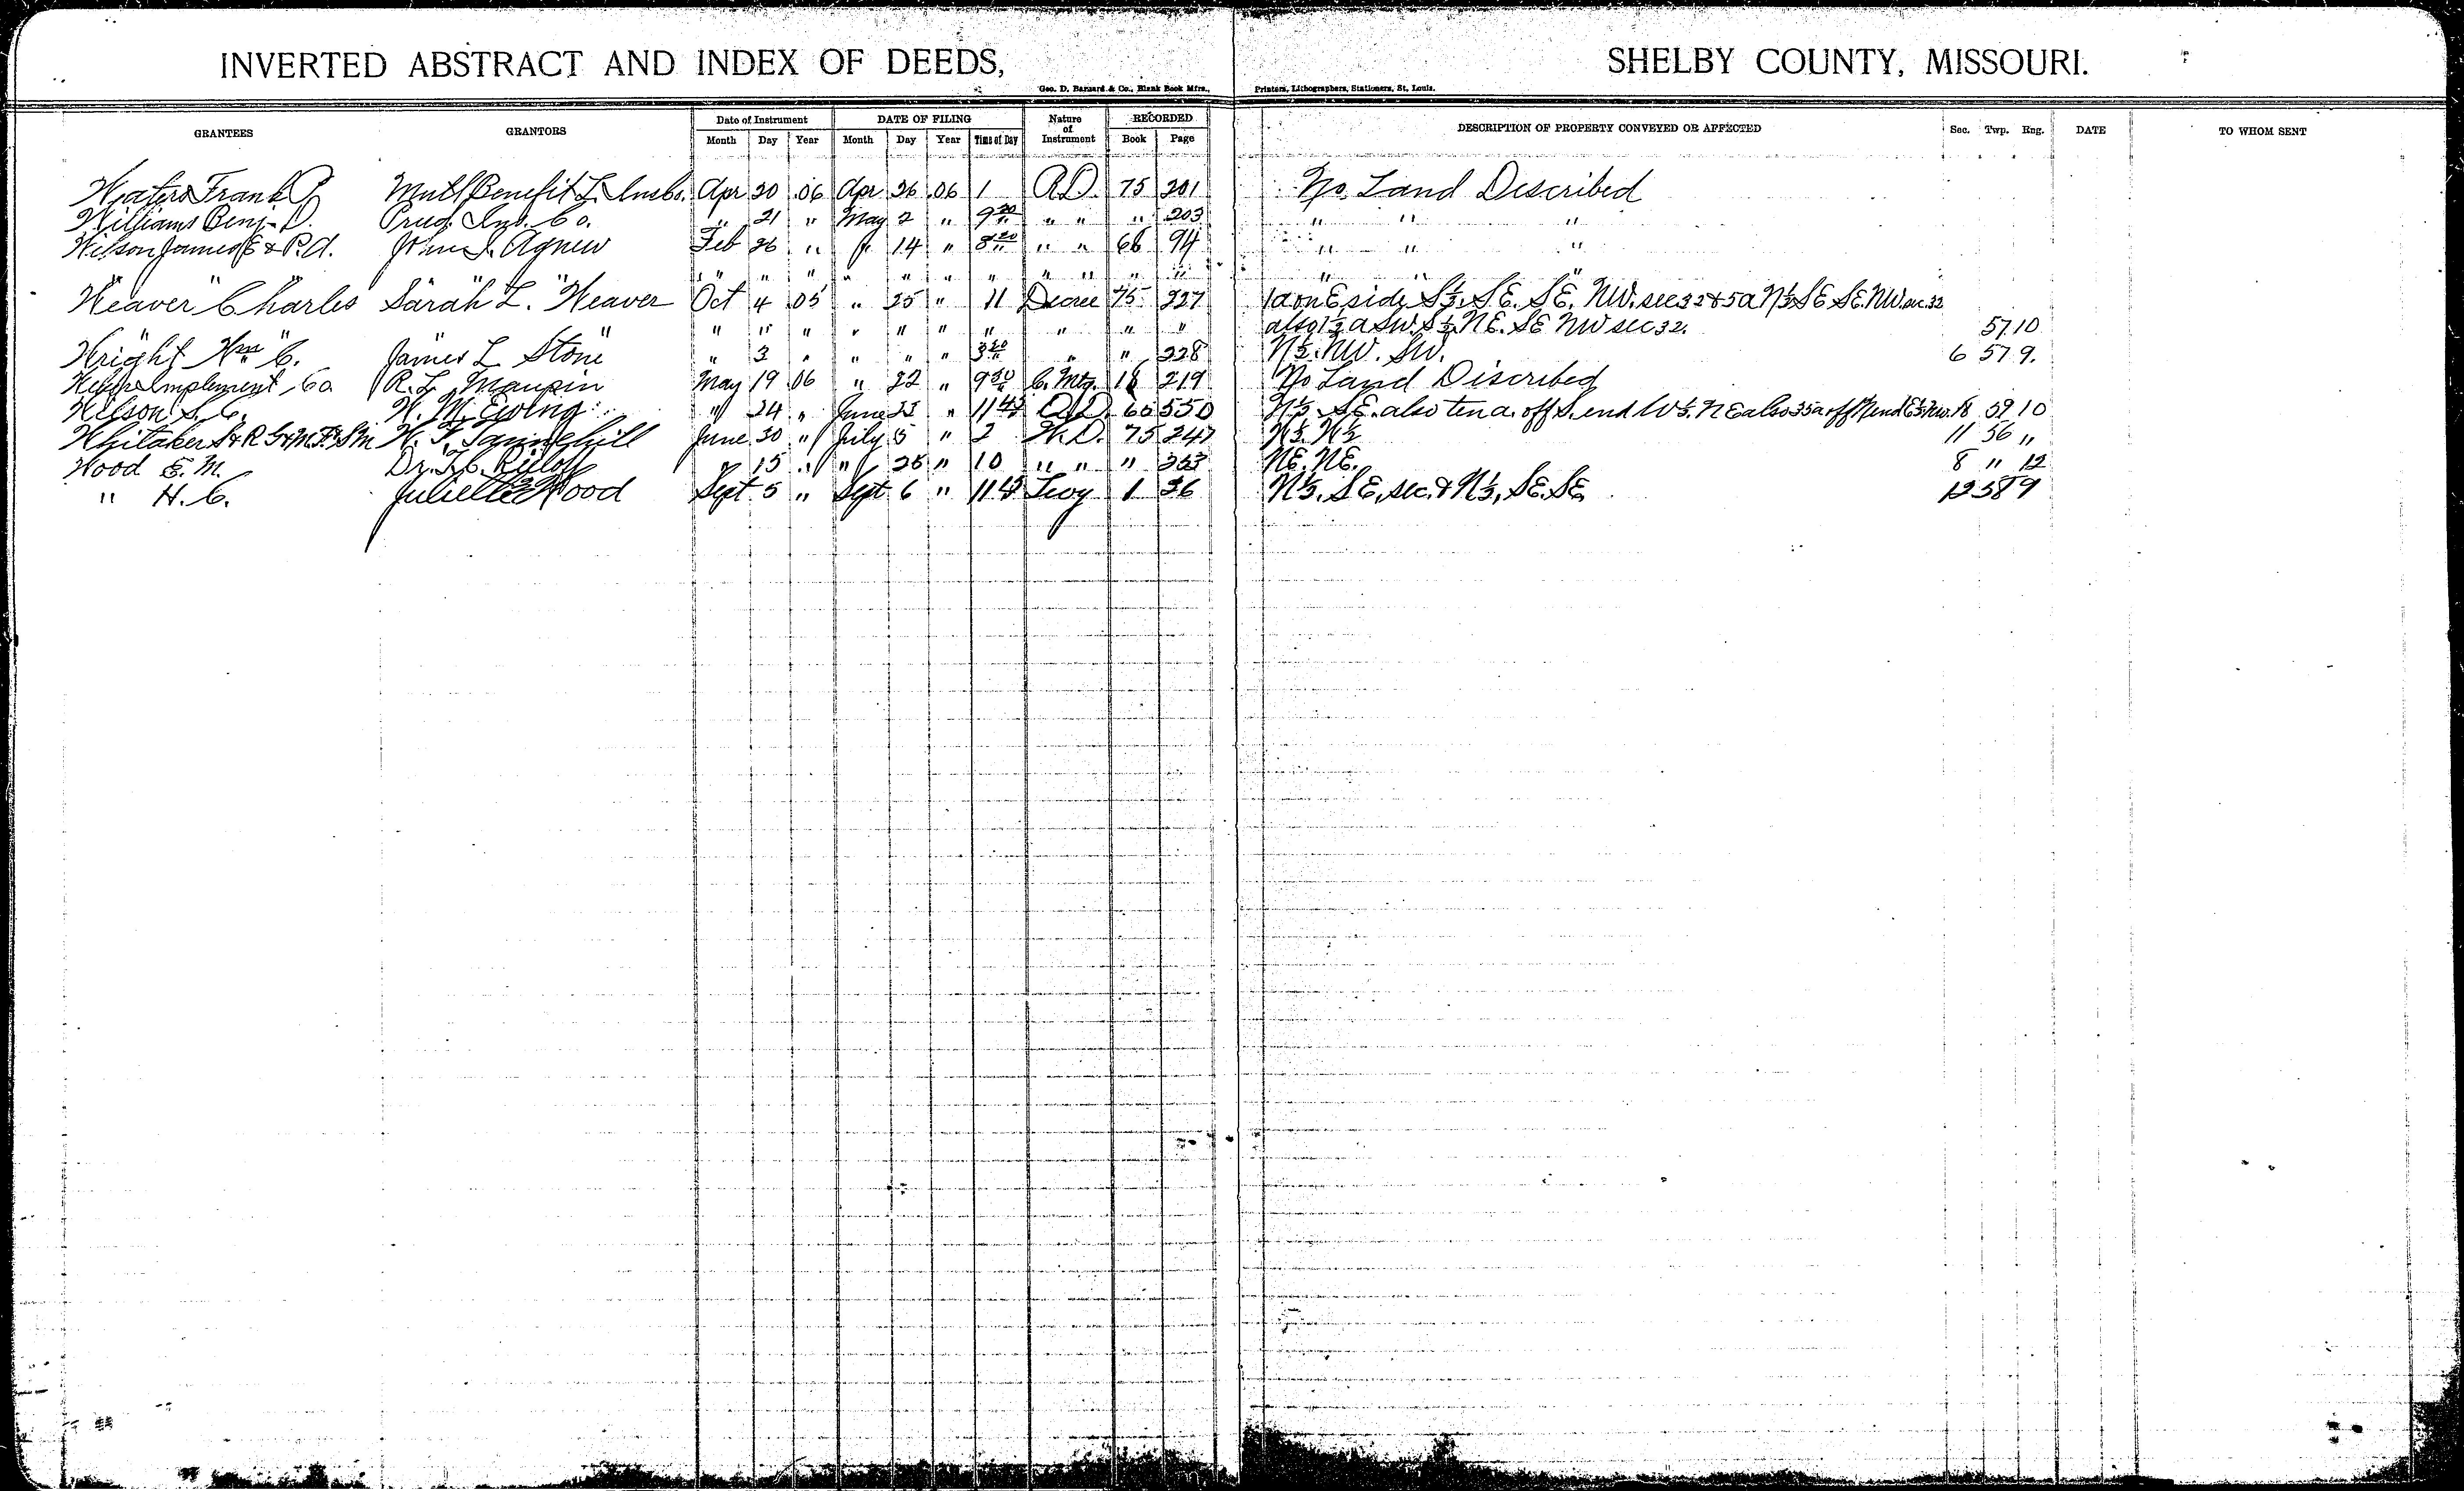 INVERTED ABSTRACT AND INDEX OF DEEDS, SHELBY COUNTY, MISSOURI.
Geo. D. Barnard & Co., Blank Book Mfrs., Printers, Lithographers, Stationers, St. Louis.
GRANTEES GRANTORS Date of Instrument DATE OF FILING Nature of Instrument RECORDED DESCRIPTION OF PROPERTY CONVEYED OR AFFECTED Sec. Twp. Rng. DATE TO WHOM SENT
Month Day Year Month Day Year Time of Day Book Page
Waters Frank Mutl Benefit L. Apr 20 06 Apr 26 06 1 R.D. 75 201 No Land Described
Williams Benj. D. Prud. Ins. Co. " 21 " May 2 " 9 20 " " " 203 " " "
Wilson James E & P.A. John S. Agnew Feb 26 " " 14 " 8 20 " " 66 94 " " "
" " " " " " " " " " " " " " "
Weaver Charles Sarah L. Weaver Oct 4 05 " 25 " 11 Decree 75 227 1a on E side S½ S.E. S.E. NW. sec 32 & 5a N½ SE SE. NW. sec. 32
" " " " " " " " " " " " also 1½ a SW. S½ N.E. SE NW sec 32. 57 10
Wright Wm C. James L Stone " 3 " " " " 3 20 " " 228 N½ NW. SW. 6 57 9.
Implement Co. R. L. Maupin May 19 06 " 22 " 9 C. Mtg. 18 219 No Land Discribed
S. C. W. M. Ewing " 24 " June 23 " 11 45 D. 66 550 N½ S.E. also ten a. off S. end W½ NE also 35a off N end E½ NW. 18 59 10
Whitaker June 30 " July 5 " 2 W.D. 75 247 N½ N½ 11 56 "
Wood E. M. Dr. " 15 " " 26 " 10 " " " 253 NE. NE. 8 " 12
" H. C. Juliette Wood Sept 5 " Sept 6 " 11 45 Levy 1 36 N½, SE, sec. & N½, SE. SE. 12 58 9